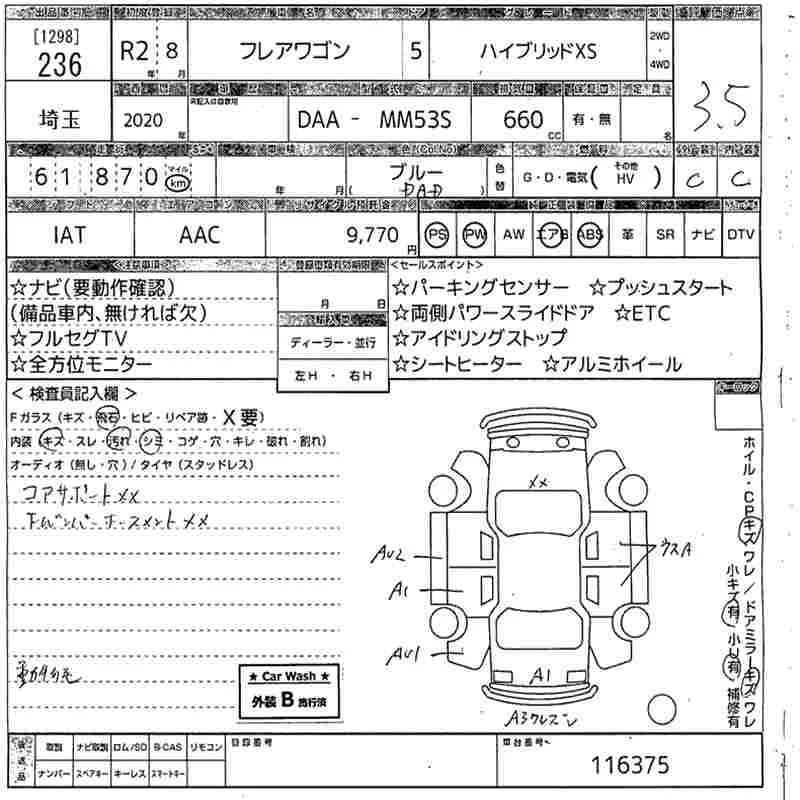 [1298]
236
R2 年 8 月
フレアワゴン
5
ハイブリッドXS
2WD
・
4WD
3.5
埼玉
2020 年
DAA - MM53S
660 CC
有・無
名
61,870 マイル km
年 月(
ブルー
)
色替
G・D・電気( その他 HV )
C
C
IAT
AAC
9,770 円
PS
PW
AW
エアB
ABS
革
SR
ナビ
DTV
☆ナビ(要動作確認)
(備品車内、無ければ欠)
☆フルセグTV
☆全方位モニター
月 日
ディーラー・並行
左H ・ 右H
<セールスポイント>
☆パーキングセンサー ☆プッシュスタート
☆両側パワースライドドア ☆ETC
☆アイドリングストップ
☆シートヒーター ☆アルミホイール
< 検査員記入欄 >
Fガラス(キズ・飛石・ヒビ・リペア跡・X要)
内装(キズ・スレ・汚れ・シミ・コゲ・穴・キレ・破れ・割れ)
オーディオ(無し・穴)/タイヤ(スタッドレス)
コアサポートXX
XX
ウスA
AU2
A1
AU1
A1
ホイル・CPキズワレ/ドアミラーキズワレ
小キズ有 小U有 補修有
★ Car Wash ★
外装 B 施行済
返送品
取説
ナビ取説
ロム/SD
B-CAS
リモコン
ナンバー
スペアキー
キーレス
スマートキー
登録番号
車台番号
116375